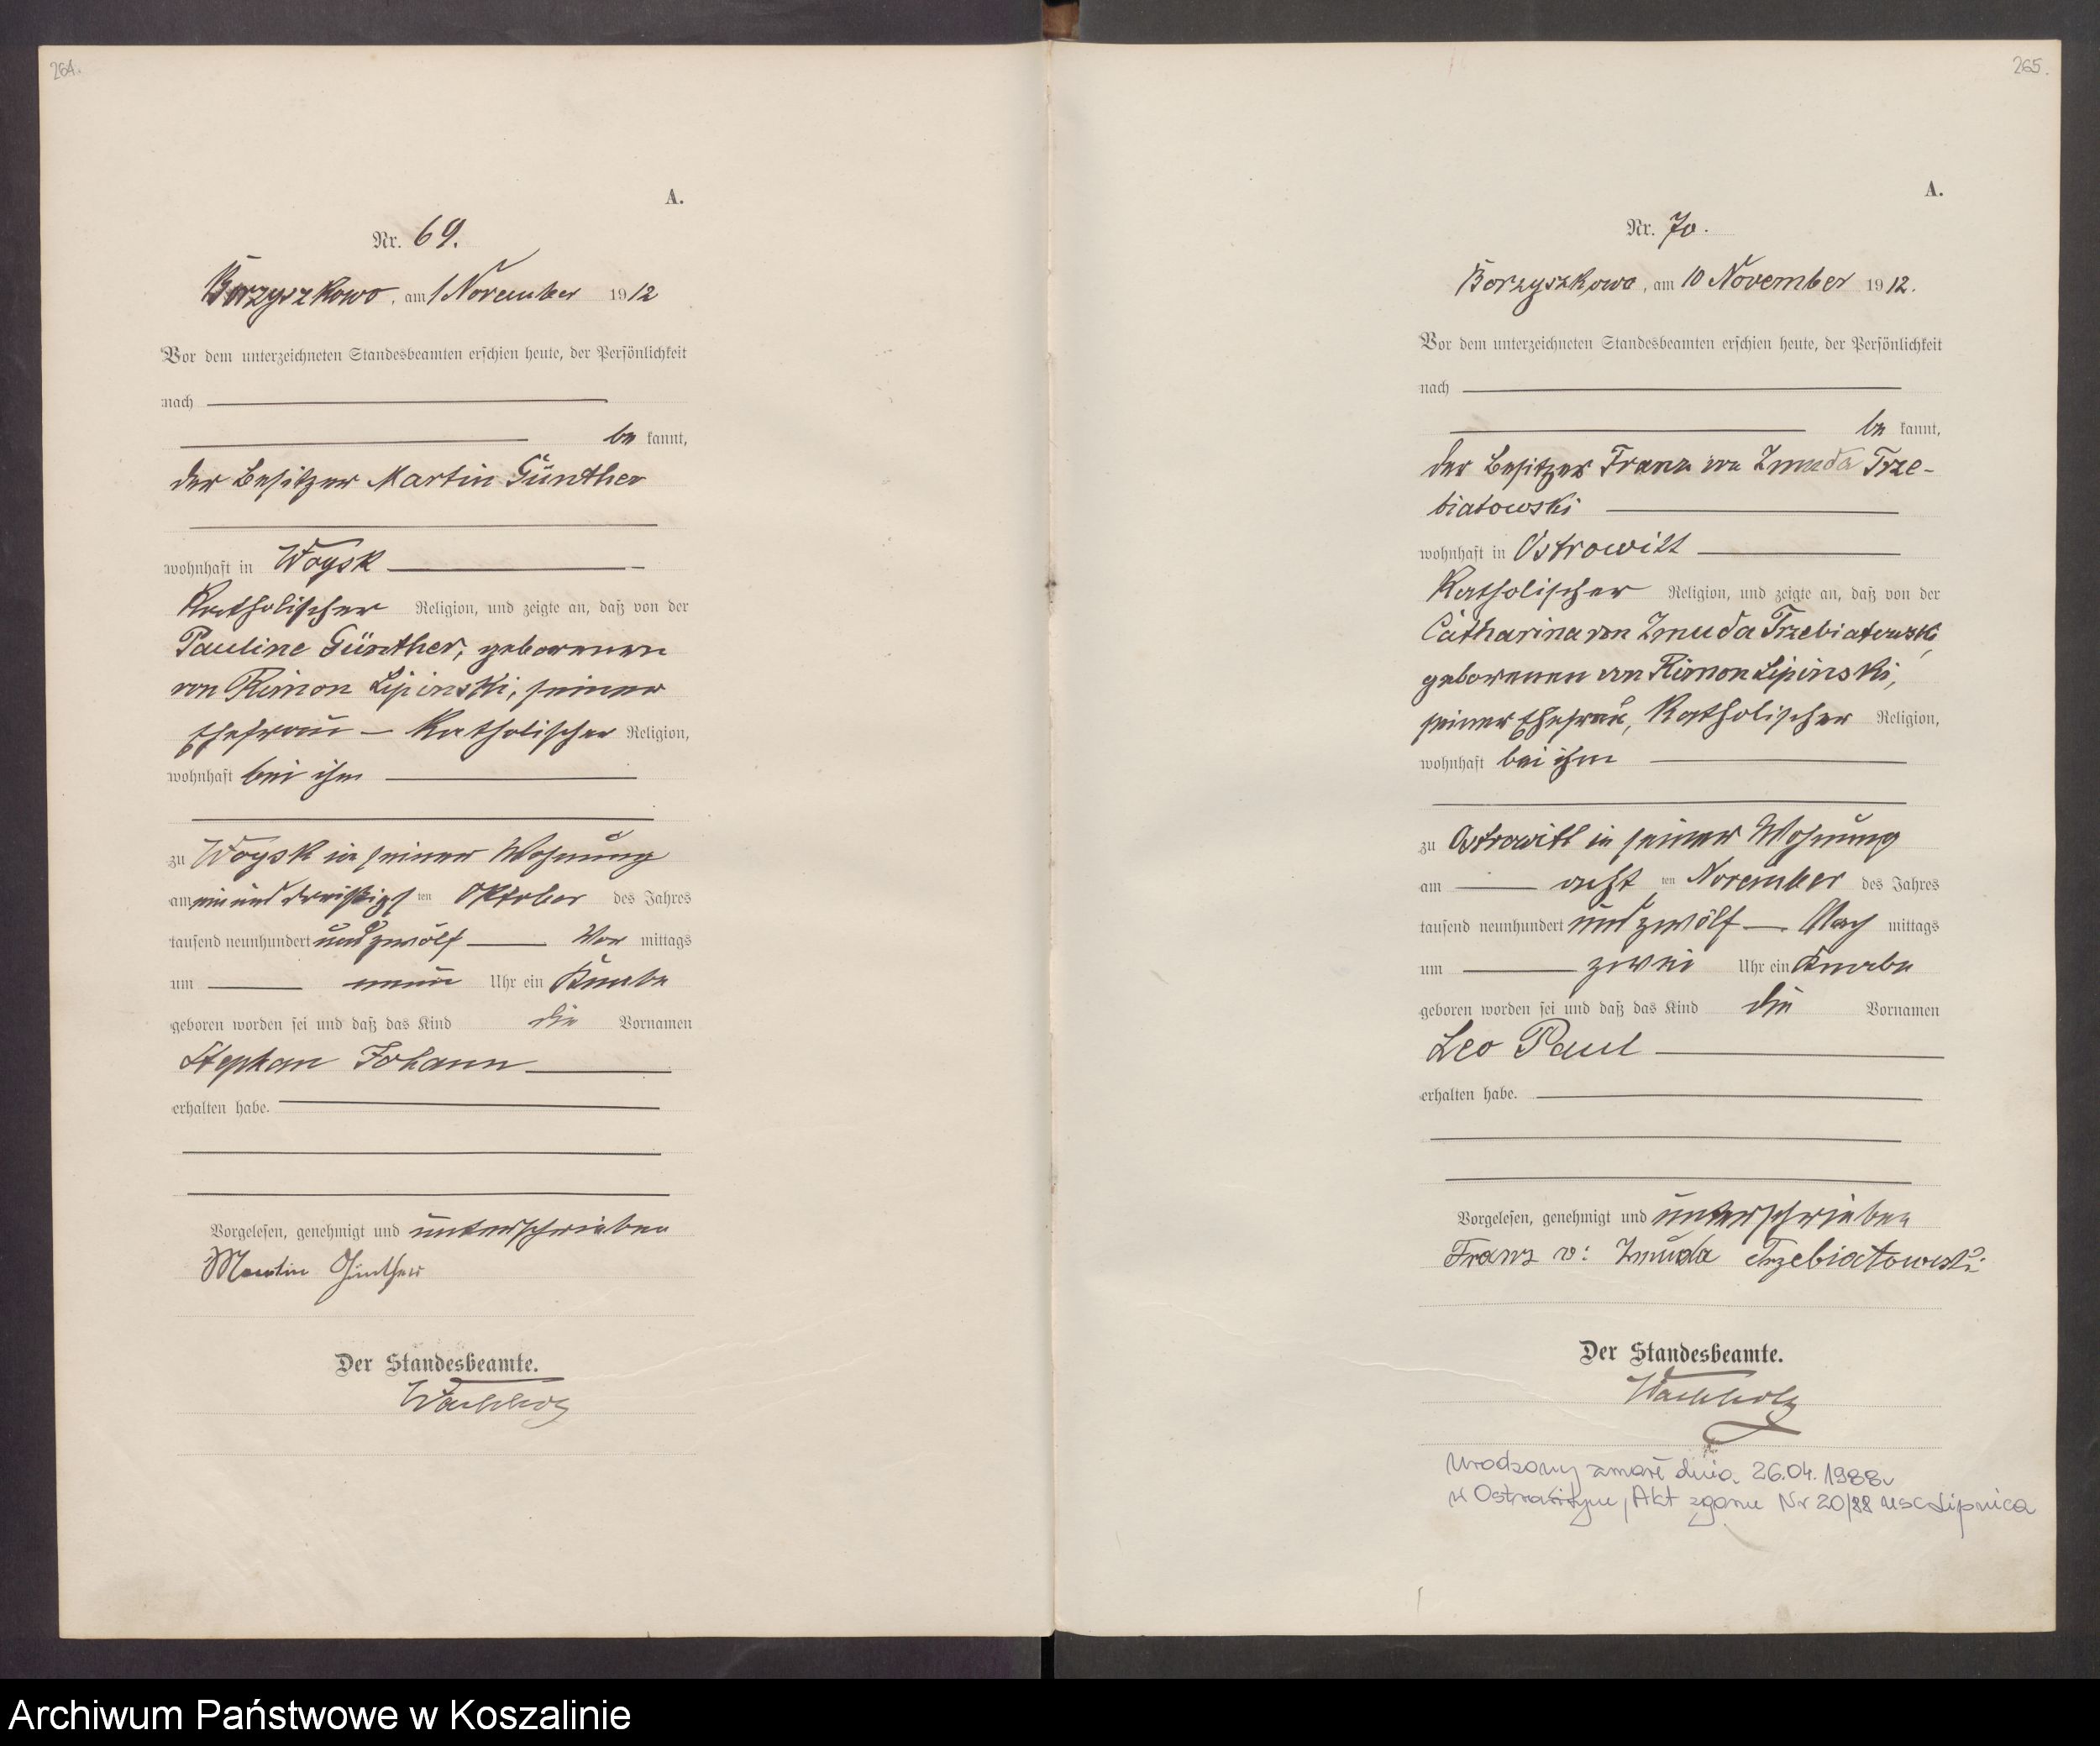 264.
A.
Nr. 69.
Borzyszkowo, am 1 November 1912
Vor dem unterzeichneten Standesbeamten erschien heute, der Persönlichkeit
nach
be kannt,
der Besitzer Martin Günther
wohnhaft in Woysk
Katholischer Religion, und zeigte an, daß von der
Pauline Günther, geborenen
von Rimon Lipinski, seiner
Ehefrau — Katholischer Religion,
wohnhaft bei ihm
zu Woysk in seiner Wohnung
am ein und dreißigst ten Oktober des Jahres
tausend neunhundert und zwölf — Vor mittags
um neun Uhr ein Knabe
geboren worden sei und daß das Kind die Vornamen
Stephan Johann
erhalten habe.
Vorgelesen, genehmigt und unterschrieben
Martin Günther
Der Standesbeamte.
Wachholz
265.
A.
Nr. 70.
Borzyszkowo, am 10 November 1912.
Vor dem unterzeichneten Standesbeamten erschien heute, der Persönlichkeit
nach
be kannt,
der Besitzer Franz von Zmuda Trze-
biatowski
wohnhaft in Ostrowitt
Katholischer Religion, und zeigte an, daß von der
Catharina von Zmuda Trzebiatowski,
geborenen von Rimon Lipinski,
seiner Ehefrau, Katholischer Religion,
wohnhaft bei ihm
zu Ostrowitt in seiner Wohnung
am acht ten November des Jahres
tausend neunhundert und zwölf — Nach mittags
um zwei Uhr ein Knabe
geboren worden sei und daß das Kind die Vornamen
Leo Paul
erhalten habe.
Vorgelesen, genehmigt und unterschrieben
Franz v: Zmuda Trzebiatowski
Der Standesbeamte.
Wachholz
Urodzony zmarł dnia 26.04.1988r
w Ostrowitym, Akt zgonu Nr 20/88 USC Lipnica
Archiwum Państwowe w Koszalinie